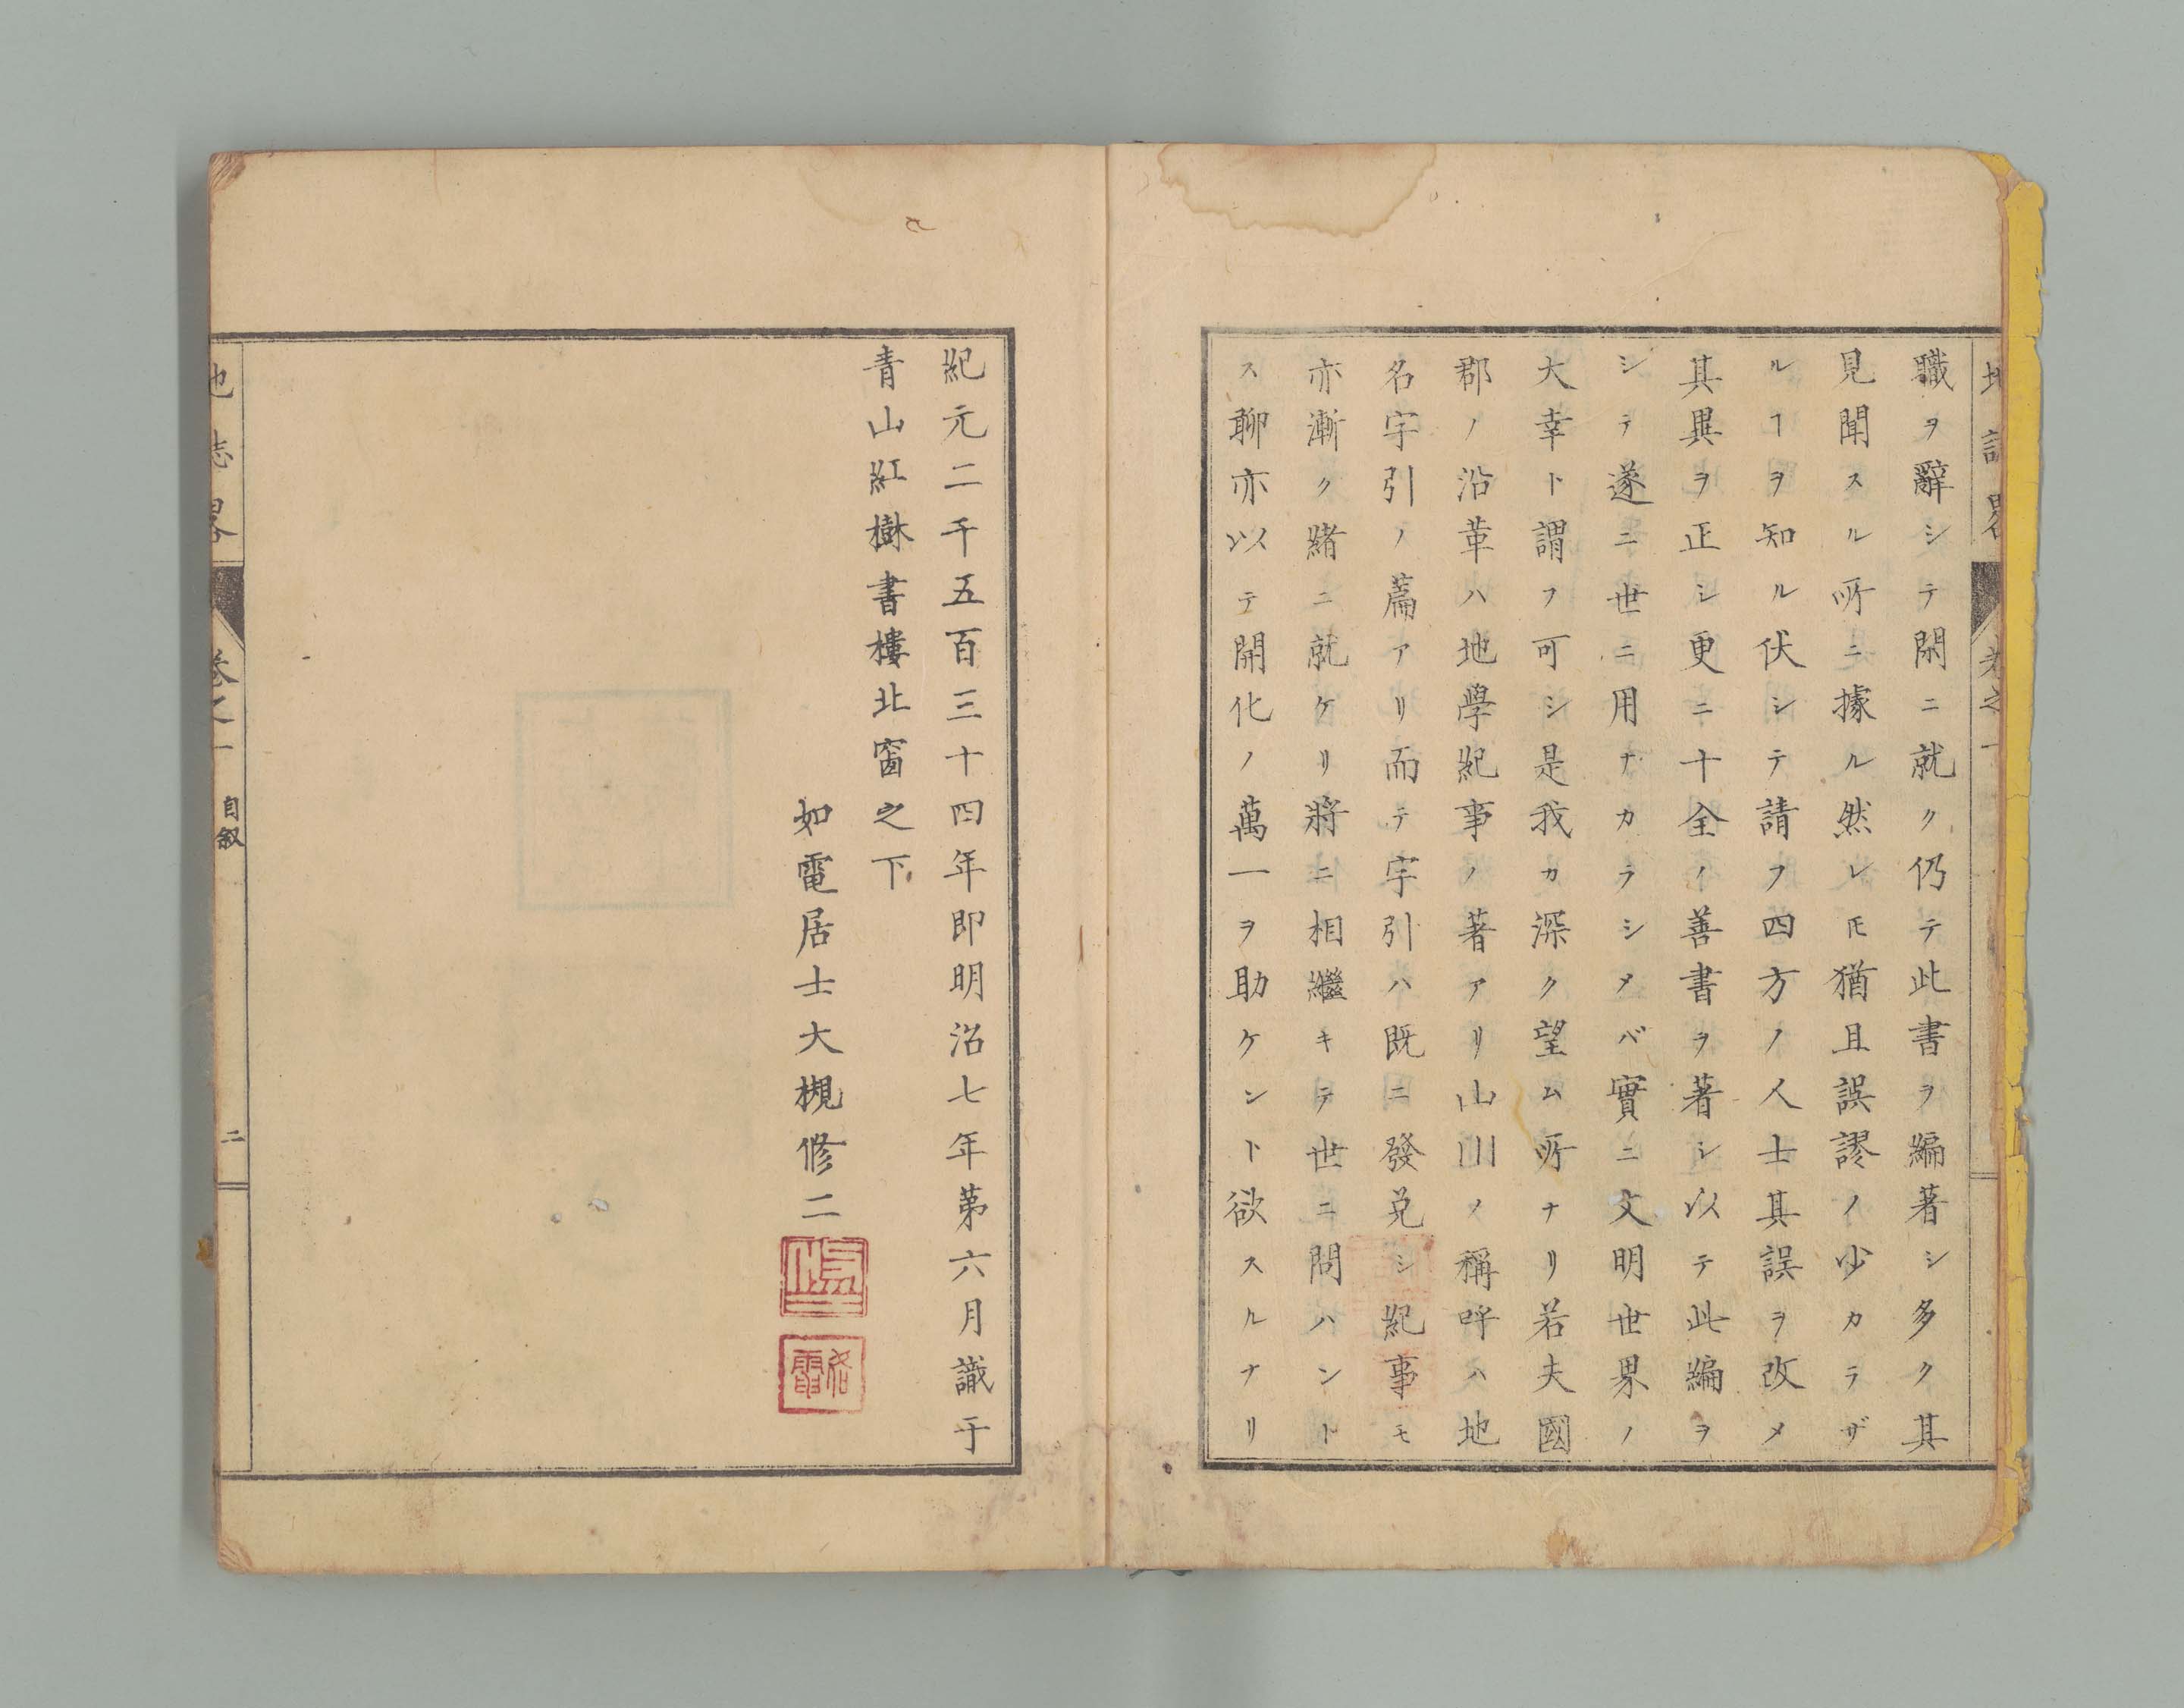 職ヲ辭シテ閑ニ就ク仍テ此書ヲ編著シ多ク其
見聞スル所ニ據ル然レ𪜈猶且誤謬ノ少カラザ
ルヿヲ知ル伏シテ請フ四方ノ人士其誤ヲ改メ
其異ヲ正シ更ニ十全ノ善書ヲ著シ以テ此編ヲ
シテ遂ニ世ニ用ナカラシメバ實ニ文明世界ノ
大幸ト謂フ可シ是我カ深ク望ム所ナリ若夫國
郡ノ沿革ハ地學紀事ノ著アリ山川ノ稱呼ハ地
名字引ノ篇アリ而テ字引ハ既ニ發兌シ紀事モ
亦漸ク緒ニ就ケリ將ニ相繼キテ世ニ問ハント
ス聊亦以テ開化ノ萬一ヲ助ケント欲スルナリ
紀元二千五百三十四年即明治七年第六月識于
青山紅樹書樓北窗之下
如電居士大槻修二
如電
地誌畧 卷之一 自叙 二